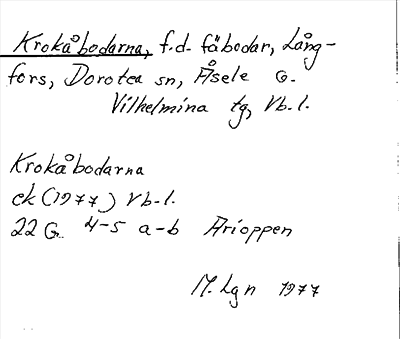 Krokåbodarna, f.d. fäbodar, Lång-
fors, Dorotea sn, Åsele G.
Vilhelmina tg, Vb.l.
Krokåbodarna
ek (1977) Vb-l.
22 G. 4-5 a-b Arioppen
M. Lgn 1977